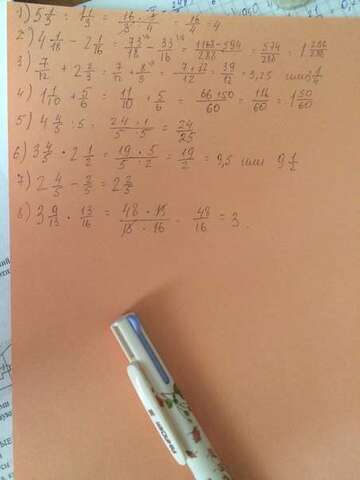 1) 5 1/3 : 4/3 = 16/3 · 3/4 = 16/4 = 4
2) 4 1/18 - 2 1/16 = 73/18 - 33/16 = 1168-594/288 = 574/288 = 1 286/288
3) 7/12 + 2 2/3 = 7/12 + 8/3 = 7+32/12 = 39/12 = 3,25 или 3 1/4
4) 1 1/10 + 5/6 = 11/10 + 5/6 = 66+50/60 = 116/60 = 1 50/60
5) 4 4/5 : 5 = 24·1/5·5 = 24/25
6) 3 4/5 · 2 1/2 = 19·5/5·2 = 19/2 = 9,5 или 9 1/2
7) 2 4/5 - 2/5 = 2 2/5
8) 3 9/13 · 13/16 = 48·13/13·16 = 48/16 = 3.